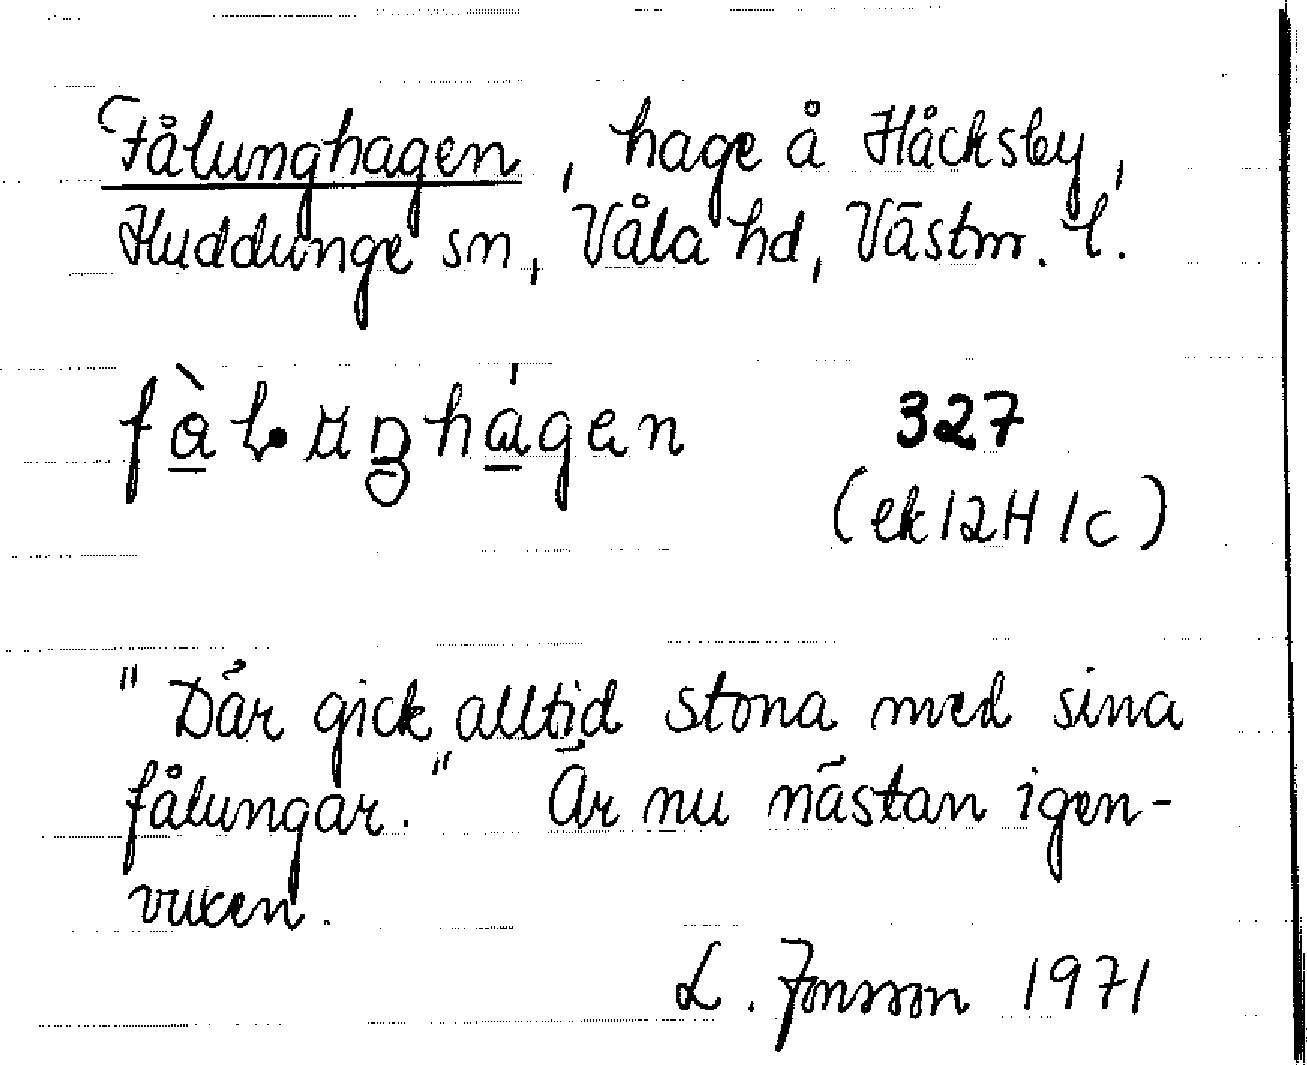 Fålunghagen, hage å Håcksby,
Huddunge sn, Våla hd, Västm. l.
fàlunghágen 327
(ek 12H 1c)
"Där gick alltid stona med sina
fålungar." Är nu nästan igen-
vuxen.
L. Jonsson 1971